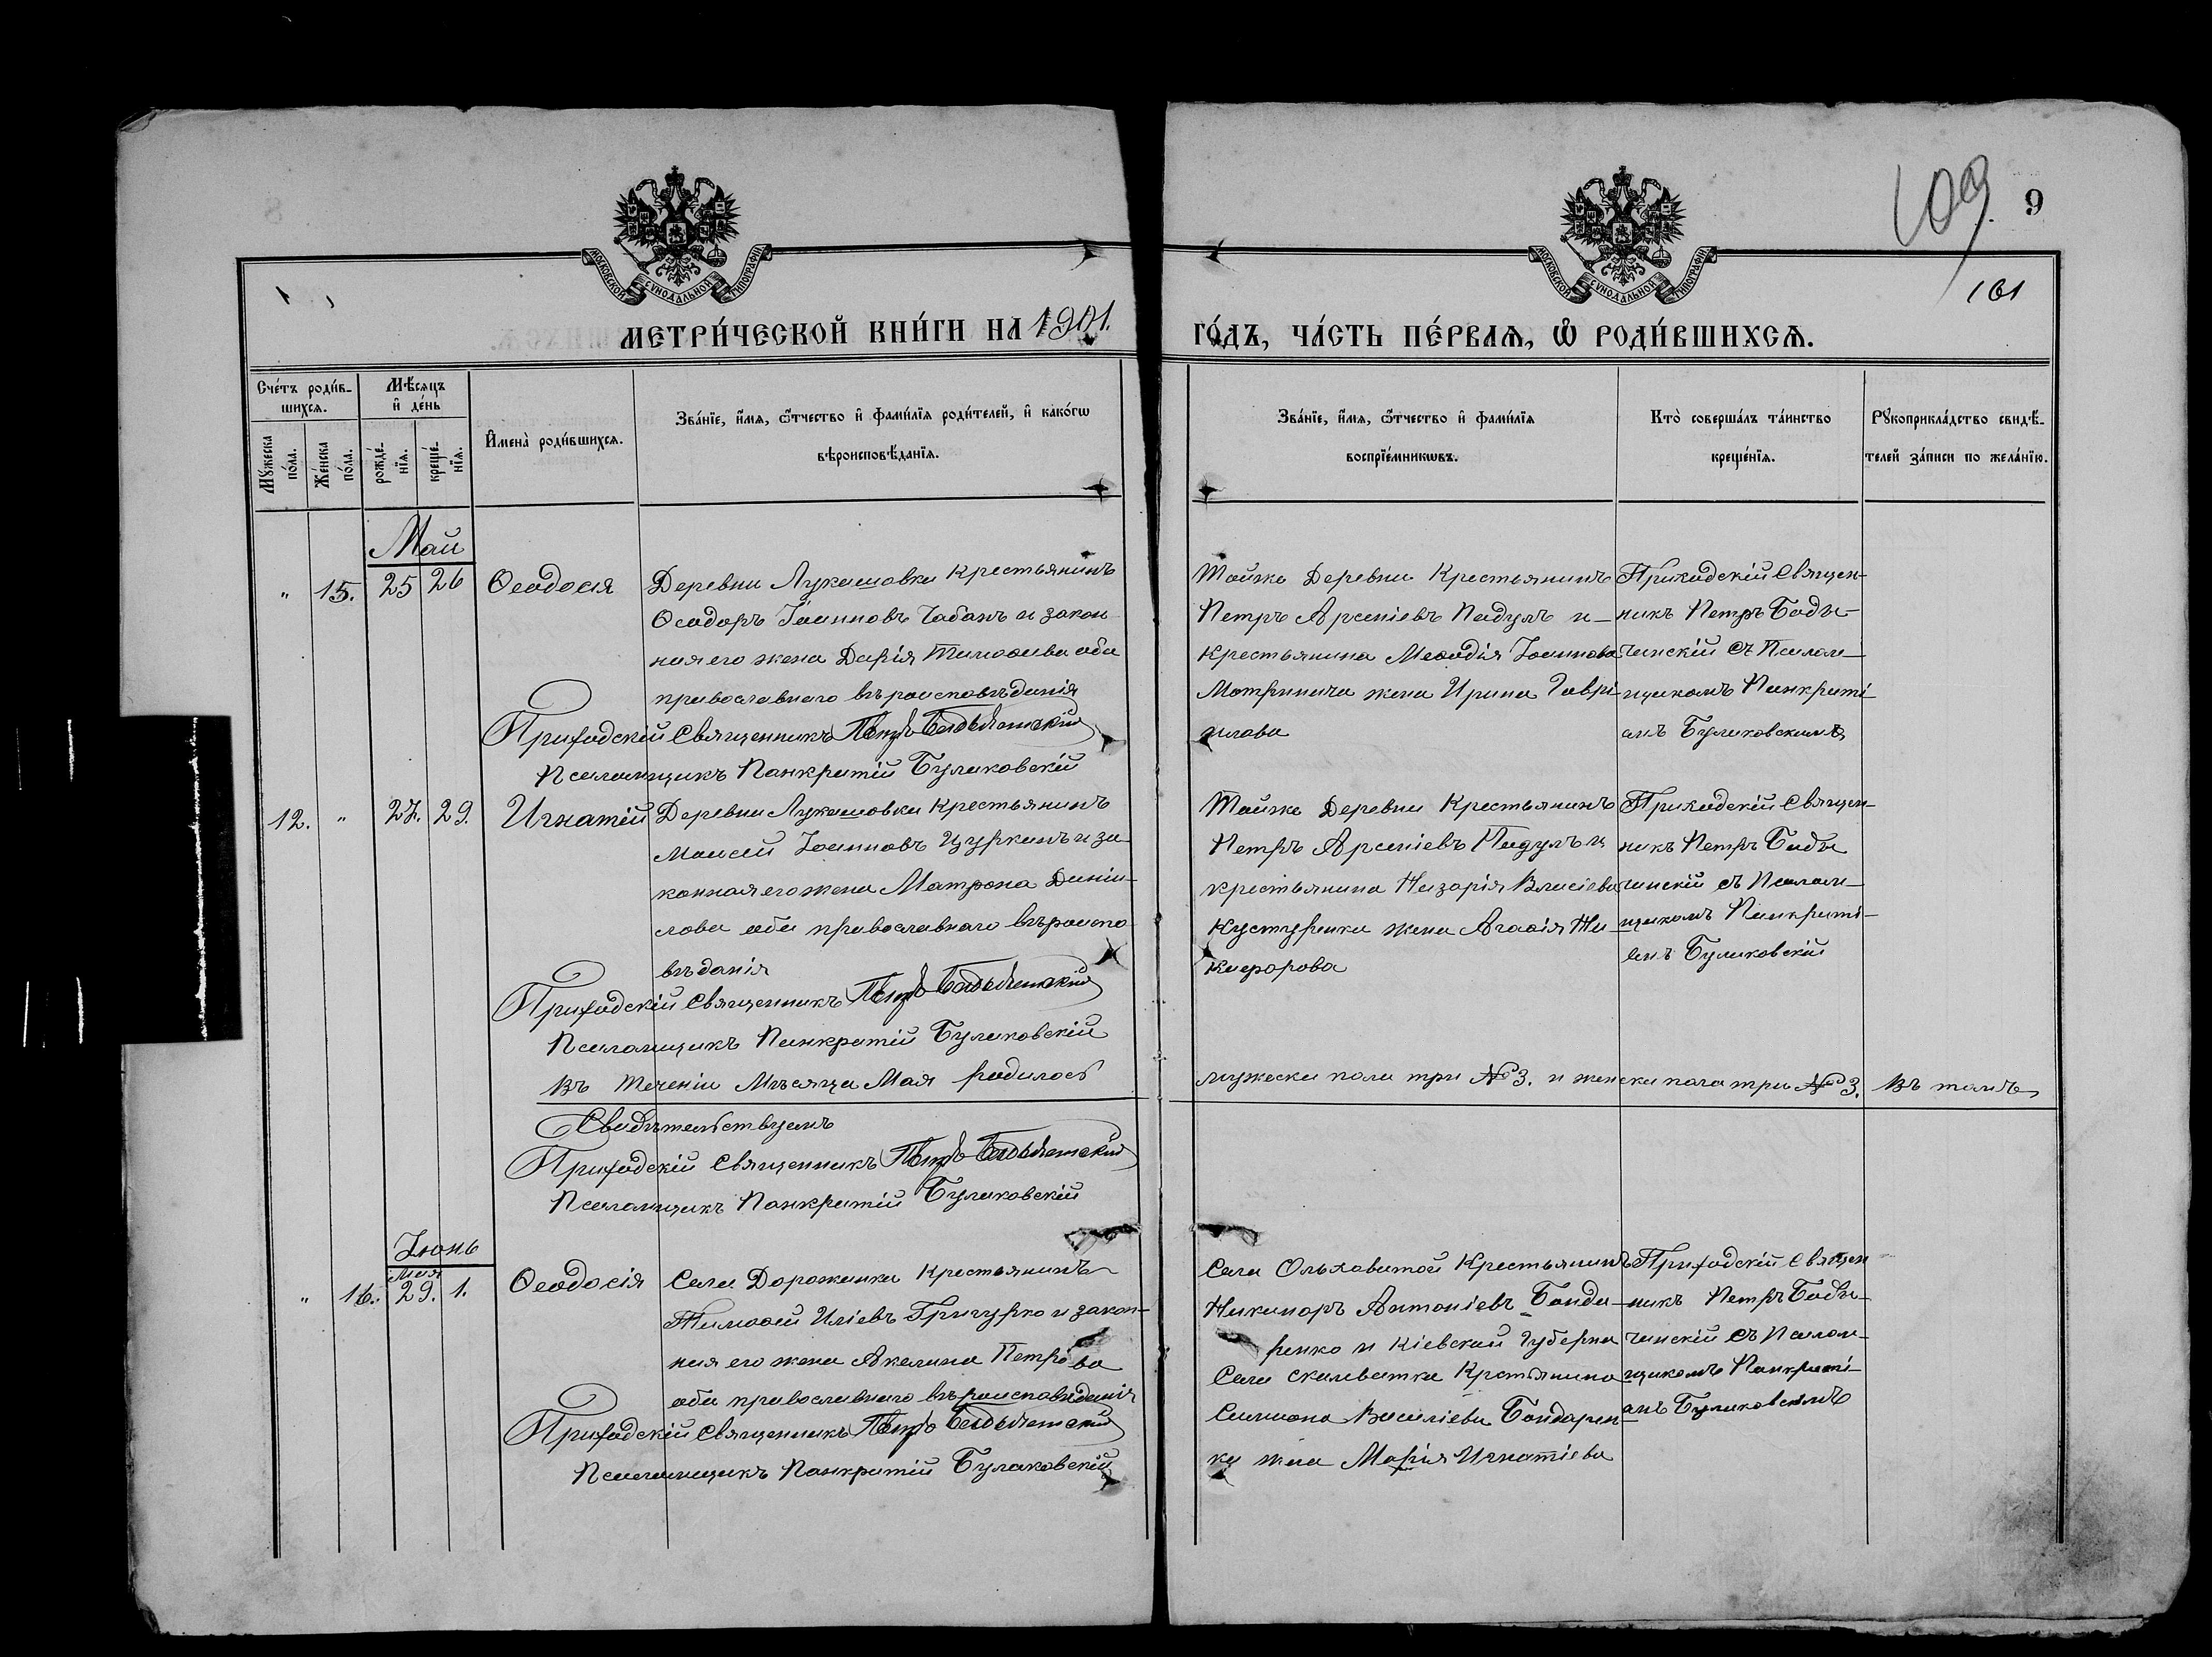 109. 9
161
МОСКОВСКОЙ СѴНОДАЛЬНОЙ ТИПОГРАФІИ
МОСКОВСКОЙ СѴНОДАЛЬНОЙ ТИПОГРАФІИ
МЕТРИ́ЧЕСКОЙ КНИ́ГИ НА 1901.
ГО́ДЪ, ЧА́СТЬ ПЕ́РВАѦ, Ѽ РОДИ́ВШИХСѦ.
Сче́тъ роди́в-
шихсѧ.
Мꙋ́жеска по́ла.
Же́нска по́ла.
Мѣ́сѧцъ
и҆ де́нь
рожде́-
нїѧ.
креще́-
нїѧ.
И҆мена̀ роди́вшихсѧ.
Зва́нїе, и҆́мѧ, ѻ҆́тчество и҆ фами́лїѧ роди́телей, и҆ како́гѡ
вѣроисповѣ́данїѧ.
Зва́нїе, и҆́мѧ, ѻ҆́тчество и҆ фами́лїѧ
воспрїе́мникѡвъ.
Кто̀ соверша́лъ та́инство
креще́нїѧ.
Рꙋкоприкла́дство свидѣ́-
телей за́писи по жела́нїю.
Май
" 15. 25 26 Ѳеодосія
Деревни Лукашовки Крестьянинъ
Ѳеодоръ Іоанновъ Чабанъ и закон
ная его жена Дарія Тимоѳеева оба
православнаго вѣроисповѣданія
Приходскій Священникъ Петръ
Псаломщикъ Панкратій Булаковскій
Тойже Деревни Крестьянинъ
Петръ Арсеніевъ Падулъ и
Крестьянина Меѳодія Іоаннова
жена Ирина Гаврі-
илова
Приходскій Священ-
никъ Петръ Боды-
чинскій съ Псалом-
щикомъ Панкраті-
емъ Булаковскимъ
12. " 27. 29. Игнатій
Деревни Лукашовки Крестьянинъ
Моисей Іоанновъ Цурканъ и за
конная его жена Матрона Даніи-
лова оба православнаго вѣроиспо
вѣданія
Приходскій Священникъ Петръ
Псаломщикъ Панкратій Булаковскій
Тойже Деревни Крестьянинъ
Петръ Арсеніевъ Падулъ и
крестьянина Назарія Власіева
жена Агаѳія Ни-
кифорова
Приходскій Священ-
никъ Петръ Боды
чинскій съ Псалом-
щикомъ Панкраті-
емъ Булаковскій
Въ теченіи Мѣсяца Мая родилось
мужеска пола три № 3. и женска пола три № 3. Въ томъ
Свидѣтельствуемъ
Приходскій Священникъ Петръ
Псаломщикъ Панкратій Булаковскій
Іюнь
Мая
" 16. 29. 1. Ѳеодосія
Села Дорожинки Крестьянинъ
Тимоѳей Иліевъ Григурко и закон-
ная его жена Акелина Петрова
оба православнаго вѣроисповѣданія
Приходскій Священникъ Петръ
Псаломщикъ Панкратій Булаковскій
Села Ольховатой Крестьянинъ
Никаноръ Антоніевъ Бонда-
ренко и Кіевской Губерни
Села Скалватки Крстьянина
Симеона Василіева Бондарен-
ка жена Марія Игнатіева
Приходскій Священ
никъ Петръ Боды-
чинскій съ Псалом-
щикомъ Панкраті-
емъ Булаковскимъ